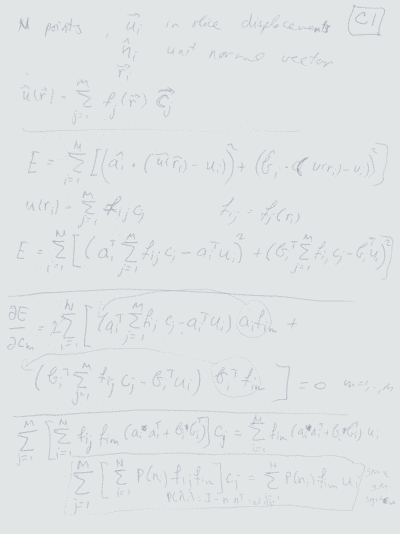 N points, \vec{u}_i in slice displacements C1
\hat{n}_i unit normal vector
\vec{r}_i
\vec{u}(\vec{r}) = \sum_{j=1}^{M} f_j(\vec{r}) \vec{C}_j
E = \sum_{i=1}^{N} [(\hat{a}_i \cdot (\vec{u}(\vec{r}_i) - u_i))^2 + (\hat{b}_i \cdot (u(r_i) - u_i))^2]
u(r_i) = \sum_{j=1}^{M} f_{ij} c_j f_{ij} = f_j(r_i)
E = \sum_{i=1}^{N} [(a_i^T \sum_{j=1}^{M} f_{ij} c_j - a_i^T u_i)^2 + (b_i^T \sum_{j=1}^{M} f_{ij} c_j - b_i^T u_i)^2]
\frac{\partial E}{\partial c_m} = 2 \sum_{i=1}^{N} [(a_i^T \sum_{j=1}^{M} f_{ij} c_j - a_i^T u_i) a_i f_{im} +
(b_i^T \sum_{j=1}^{M} f_{ij} c_j - b_i^T u_i) b_i^T f_{im}] = 0 m=1,..,M
\sum_{j=1}^{M} [\sum_{i=1}^{N} f_{ij} f_{im} (a_i a_i^T + b_i b_i^T)] c_j = \sum_{i=1}^{N} f_{im} (a_i a_i^T + b_i b_i^T) u_i
\sum_{j=1}^{M} [\sum_{i=1}^{N} P(n_i) f_{ij} f_{im}] c_j = \sum_{i=1}^{N} P(n_i) f_{im} u_i
P(n_i) = I - n n^T
system